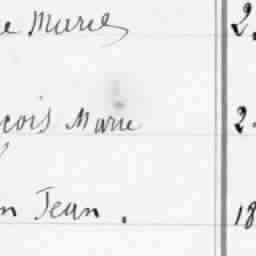 e Marie 2
cois Marie 2
n Jean. 18